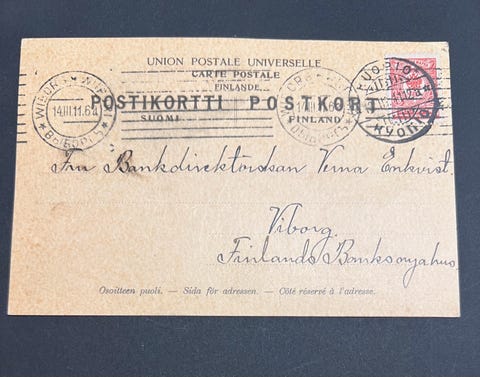 UNION POSTALE UNIVERSELLE
CARTE POSTALE
FINLANDE
POSTIKORTTI POSTKORT
SUOMI FINLAND
14.III.11.6
KUOPIO
КУОПІО
Fru Bankdirektörskan Verna Enkvist.
Viborg.
Finlands Banks
Osoitteen puoli. — Sida för adressen. — Côté réservé à l'adresse.